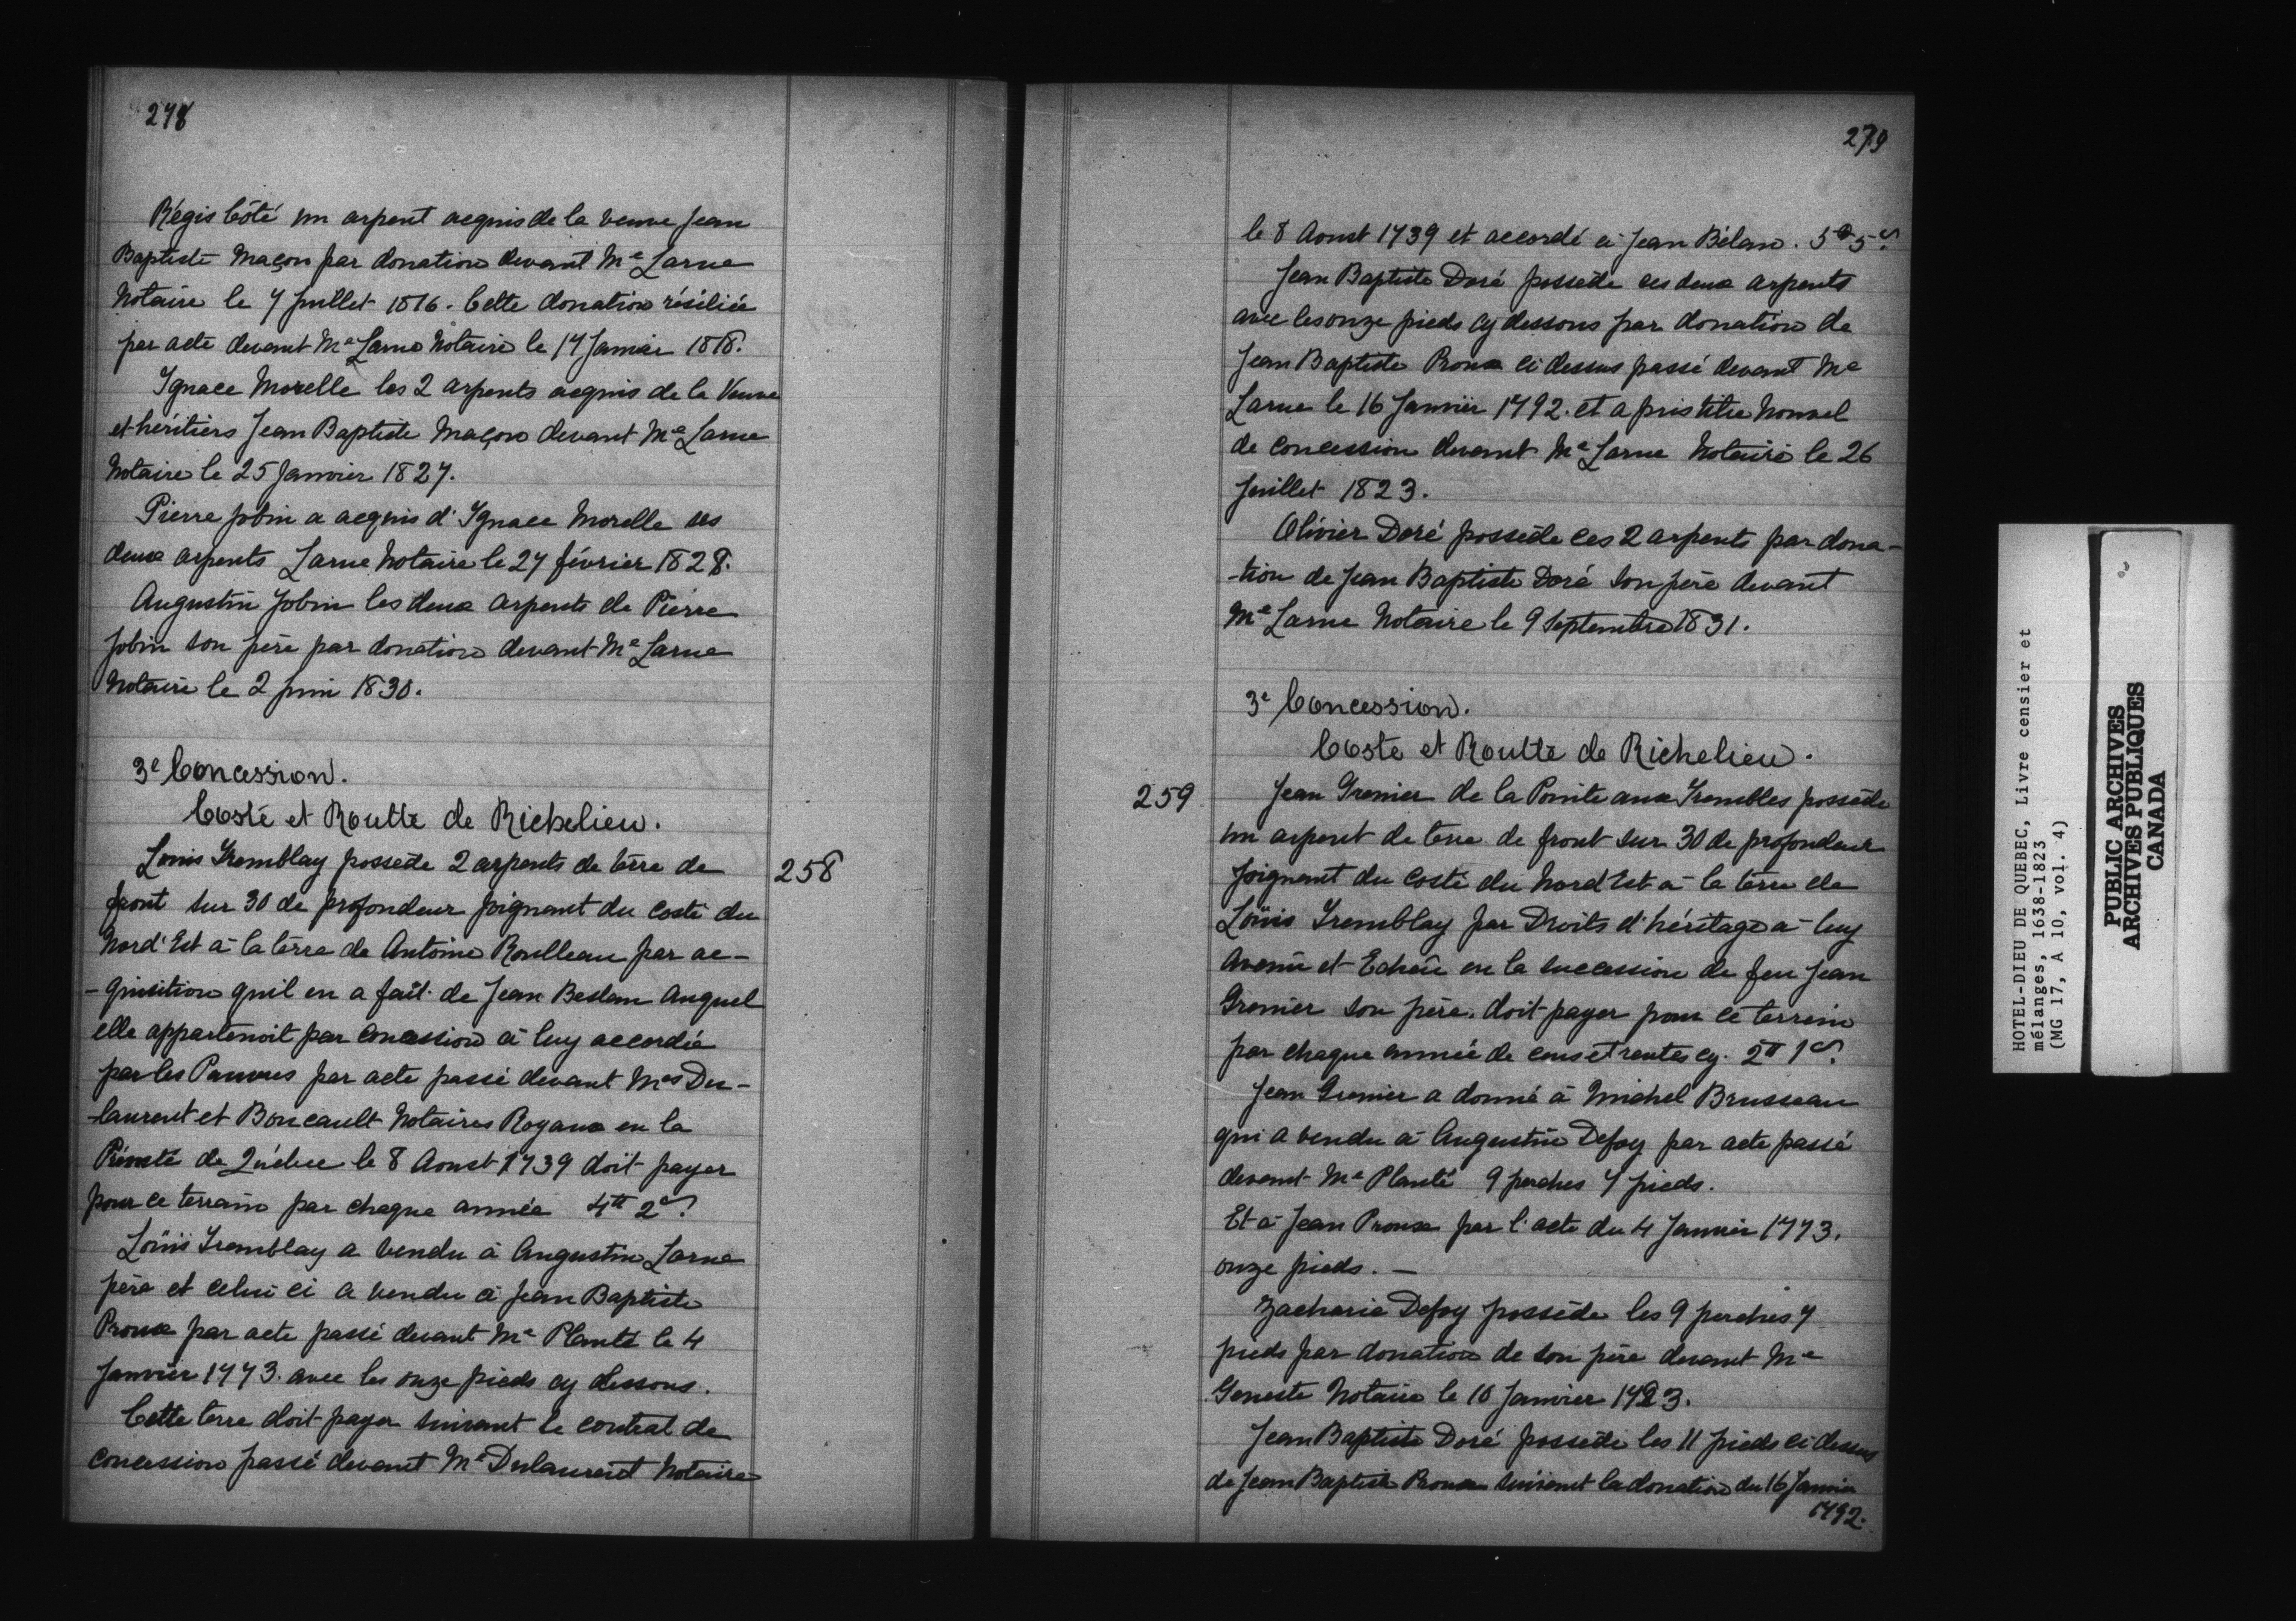 278
Régis Côté un arpent acquis de la veuve Jean
Baptiste Maçon par donation devant Me Larue
Notaire le 7 Juillet 1816. Cette donation résiliée
par acte devant Me Larue Notaire le 17 Janvier 1818.
Ignace Morelle les 2 arpents acquis de la Veuve
et héritiers Jean Baptiste Maçon devant Me Larue
Notaire le 25 Janvier 1827.
Pierre Jobin a acquis d'Ignace Morelle ses
deux arpents Larue Notaire le 27 février 1828.
Augustin Jobin les deux arpents de Pierre
Jobin son père par donation devant Me Larue
Notaire le 2 juin 1830.
3e Concession.
Costé et Routte de Richelieu.
258
Louis Tremblay possede 2 arpents de terre de
front sur 30 de profondeur joignant du costé du
Nord'Est à la terre de Antoine Roulleau par ac-
-quisition quil en a fait de Jean Beslan Auquel
elle appartenoit par concession à luy accordée
par les Pauvres par acte passé devant Mes Du-
-laurent et Boucault Notaires Royaux en la
Prévosté de Québec le 8 Aoust 1739 doit payer
pour ce terrain par chaque année 4tt 2s.
Loüis Tremblay a vendu à Augustin Larue
père et celui ci a vendu à Jean Baptiste
Proux par acte passé devant Me Planté le 4
Janvier 1773. avec les onze pieds cy dessous.
Cette terre doit payer suivant le contrat de
concession passé devant Me Dulaurent Notaire
279
le 8 Aoust 1739 et accordé à Jean Bélan. 5tt 5s.
Jean Baptiste Doré possède ces deux arpents
avec les onze pieds cy dessous par donation de
Jean Baptiste Proux ci dessus passé devant Me
Larue le 16 Janvier 1792. et a pris titre Nouvel
de concession devant Me Larue Notaire le 26
Juillet 1823.
Olivier Doré possède ces 2 arpents par dona-
-tion de Jean Baptiste Doré son père devant
Me Larue Notaire le 9 Septembre 1831.
3e Concession.
Costé et Routte de Richelieu.
259
Jean Grenier de la Pointe aux Trembles possède
un arpent de terre de front sur 30 de profondeur
Joignant du costé du Nord Est à la terre de
Loüis Tremblay par Droits d'héritage à luy
Avenü et Echeü en la succession de feu Jean
Grenier son père. doit payer pour ce terrein
par chaque année de cens et rentes cy. 2tt 1s.
Jean Grenier a donné à Michel Brusseau
qui a vendu à Augustin Defoy par acte passé
devant Me Planté 9 perches 7 pieds.
Et à Jean Proux par l'acte du 4 Janvier 1773.
onze pieds. —
Zacharie Defoy possède les 9 perches 7
pieds par donation de son père devant Me
Geneste Notaire le 10 Janvier
Jean Baptiste Doré possède les 11 pieds ci dessus
de Jean Baptiste Proux suivant la donation du 16 Janvier
1792.
HOTEL-DIEU DE QUEBEC, Livre censier et
mélanges, 1638-1823
(MG 17, A 10, vol. 4)
PUBLIC ARCHIVES
ARCHIVES PUBLIQUES
CANADA